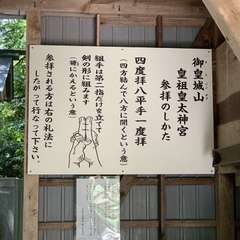 御皇城山
皇祖皇太神宮
参拝のしかた
四度拝八平手一度拝
(四方結んで八方に開くという意)
組手は第一指だけを立てて
剣の形に組みます
(鍵にかえるという意)
参拝される方は右の礼法に
したがって行なって下さい。